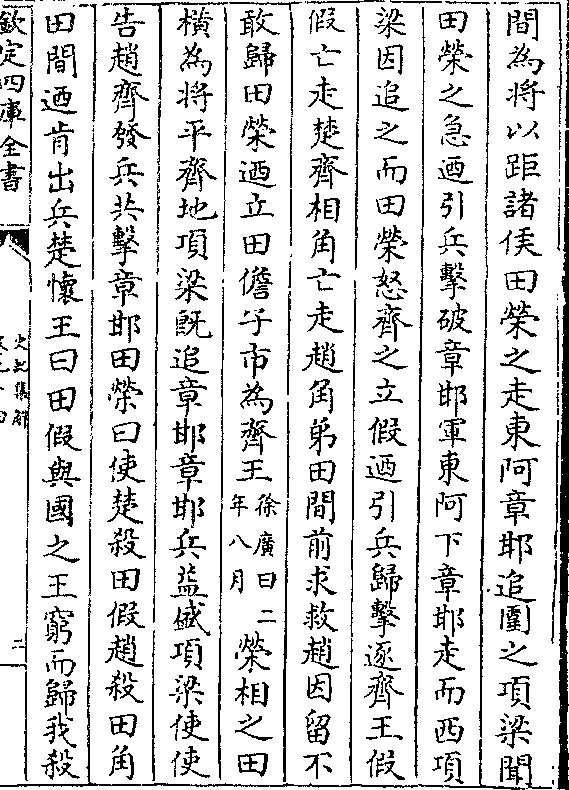 間為将以距諸侯田榮之走東阿章邯追圍之項梁聞
田榮之急迺引兵擊破章邯軍東阿下章邯走而西項
梁因追之而田榮怒齊之立假迺引兵歸擊逐齊王假
假亡走楚齊相角亡走趙角弟田間前求救趙因留不
敢歸田榮迺立田儋子市為齊王徐廣曰二年八月榮相之田
横為将平齊地項梁既追章邯章邯兵益盛項梁使使
告趙齊發兵共擊章邯田榮曰使楚殺田假趙殺田角
田間迺肯出兵楚懷王曰田假與國之王窮而歸我殺
欽定四庫全書
史記集解